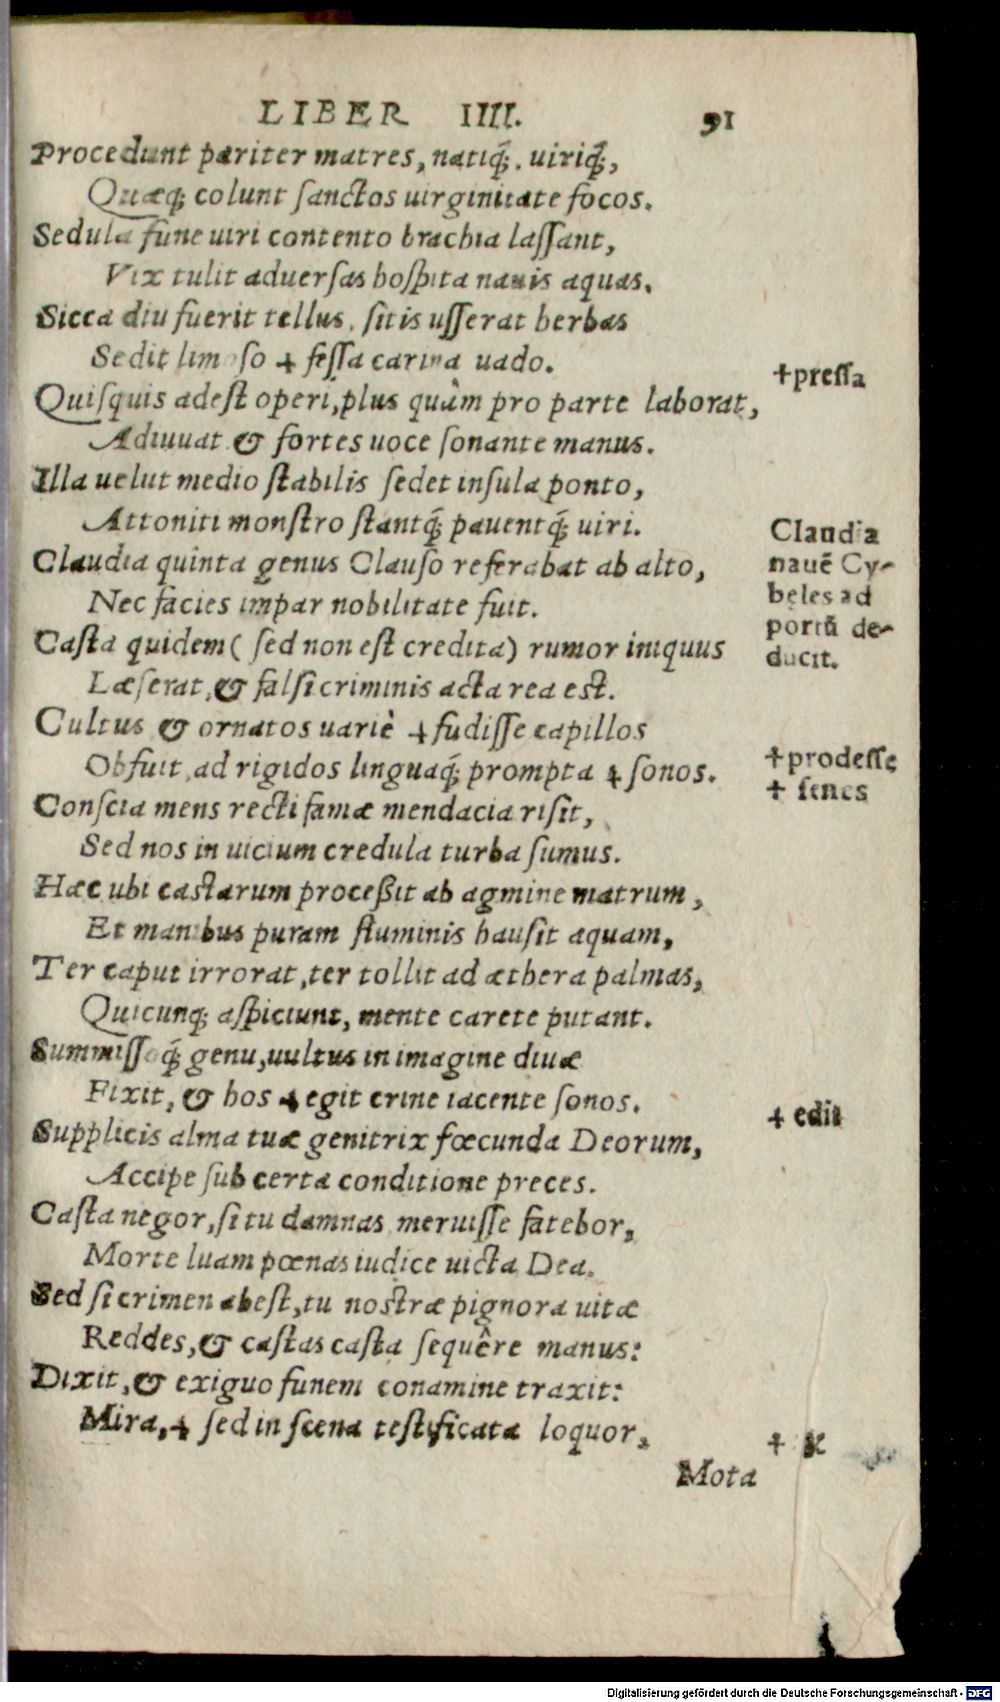 LIBER IIII. 91
Procedunt pariter matres, natiq́;. uiriq́;,
Quæq; colunt sanctos uirginitate focos.
Sedula fune uiri contento brachia lassant,
Vix tulit aduersas hospita nauis aquas.
Sicca diu fuerit tellus, sitis usserat herbas
Sedit limoso ✝ fessa carina uado.
✝pressa
Quisquis adest operi, plus quàm pro parte laborat,
Adiuuat & fortes uoce sonante manus.
Illa uelut medio stabilis sedet insula ponto,
Attoniti monstro stantq́; pauentq́; uiri.
Claudia quinta genus Clauso referabat ab alto,
Nec facies impar nobilitate fuit.
Casta quidem ( sed non est credita) rumor iniquus
Claudia
nauē Cy-
beles ad
portū de-
ducit.
Læserat, & falsi criminis acta rea est.
Cultus & ornatos uariè ✝ fudisse capillos
Obfuit, ad rigidos linguaq́; prompta ✝ sonos.
✝prodesse
✝ senes
Conscia mens recti famæ mendacia risit,
Sed nos in uicium credula turba sumus.
Hæc ubi castarum proceßit ab agmine matrum,
Et manibus puram fluminis hausit aquam,
Ter caput irrorat, ter tollit ad æthera palmas,
Quicunq; aspiciunt, mente carete putant.
Summissoq́; genu, uultus in imagine diuæ
Fixit, & hos ✝ egit crine iacente sonos.
✝ edit
Supplicis alma tuæ genitrix fœcunda Deorum,
Accipe sub certa conditione preces.
Casta negor, si tu damnas meruisse fatebor,
Morte luam pœnas iudice uicta Dea.
Sed si crimen abest, tu nostræ pignora uitæ
Reddes, & castas casta sequêre manus:
Dixit, & exiguo funem conamine traxit:
Mira, ✝ sed in scena testificata loquor,
✝ &
Mota
Digitalisierung gefördert durch die Deutsche Forschungsgemeinschaft - DFG